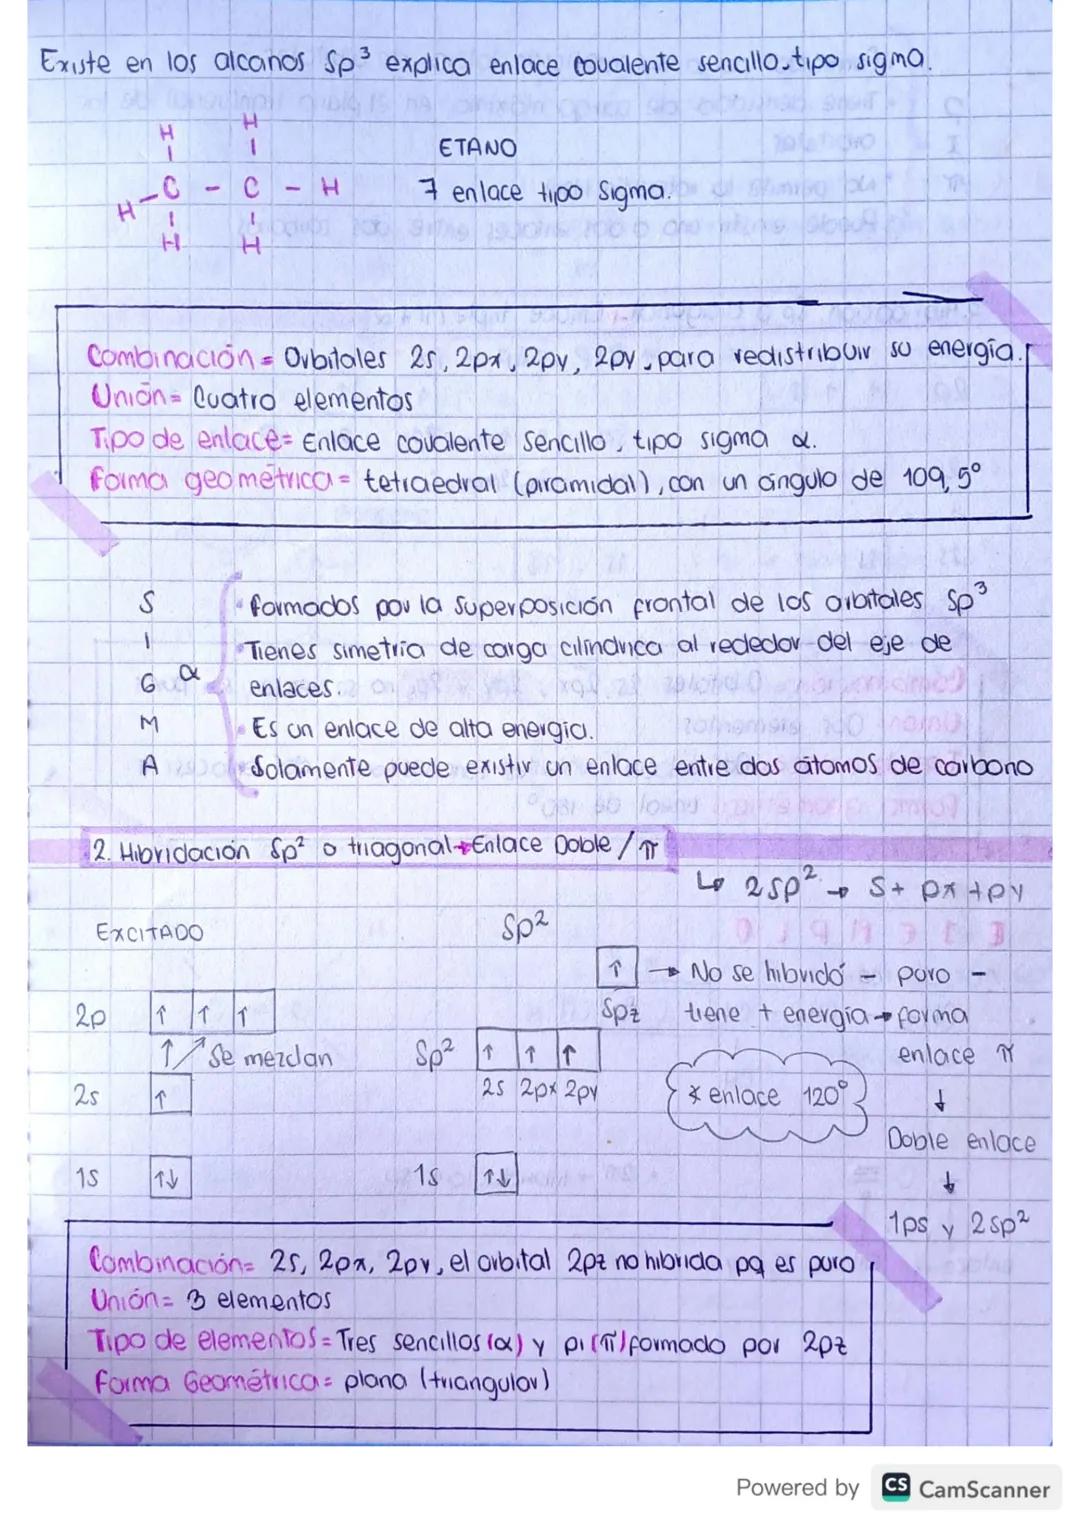 Existe en los alcanos Sp³ explica enlace covalente sencillo, tipo sigma.
H H
H - C - C - H
H H
ETANO
7 enlace tipo Sigma.
Combinación = Orbitales 2s, 2px, 2py, 2py, para redistribuir su energía.
Unión = Cuatro elementos
Tipo de enlace = Enlace covalente sencillo, tipo sigma α.
forma geométrica = tetraedral (piramidal), con un ángulo de 109,5°
SIGMA α
• formados por la superposición frontal de los orbitales Sp³
• Tienes simetría de carga cilíndrica al rededor del eje de
enlaces.
• Es un enlace de alta energía.
• Solamente puede existir un enlace entre dos átomos de carbono
2. Hibridación Sp² o triagonal → Enlace Doble / π
↳ 2sp² → S + px + py
EXCITADO
Sp²
↑ → No se hibridó - puro -
2p ↑ ↑ ↑
Spz tiene + energía → forma
↑ ↗ Se mezclan
Sp² ↑ ↑ ↑
enlace π
2s ↑
2s 2px 2py
* enlace 120°
↓
Doble enlace
1s ↑↓
1s ↑↓
↓
1ps y 2sp²
Combinación = 2s, 2px, 2py, el orbital 2pz no hibrida pq es puro
Unión = 3 elementos
Tipo de elementos = Tres sencillos (α) y pi (π) formado por 2pz
forma Geométrica = plana (triangular)
Powered by CS CamScanner